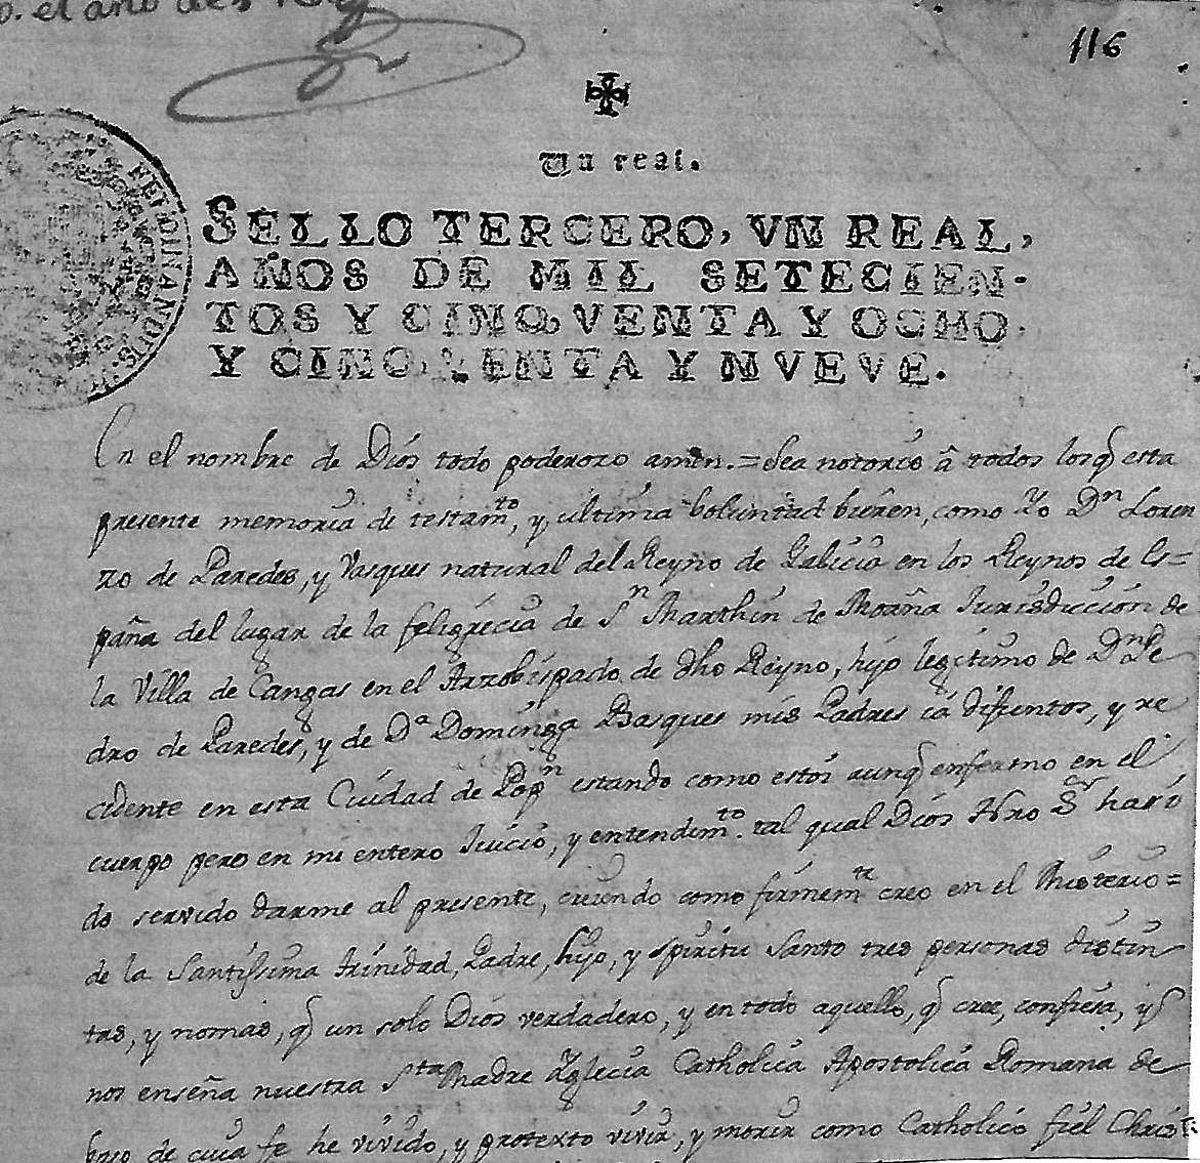 o. el año de
116
Un real.
SELLO TERCERO, VN REAL,
AÑOS DE MIL SETECIEN-
TOS Y CINQVENTA Y OCHO
Y CINQVENTA Y NVEVE.
FERDINANDUS
En el nombre de Dios todo poderozo amen.=Sea notorio â todos los q̃ esta
presente memoria de testamto, y ultima boluntad bieren, como Yo Dn Loren
zo de Paredes, y Vasques natural del Reyno de Galicia en los Reynos de Es=
paña del lugar de la feligrecia de Sn Marthin de Moaña Jurisdiccion de
la Villa de Cangas en el Arzobispado de dho Reyno, hijo legitimo de Dn Pe
dro de Paredes, y de Da Dominga Basques mis Padres ia difuntos, y re
cidente en esta Cuidad de Popn estando como estoi aunq̃ enfermo en el
cuerpo pero en mi entero Juicio, y entendimto. tal qual Dios Nro Sr ha si
do servido darme al presente, creiendo como firmemte creo en el Misterio=
de la Santissima trinidad, Padre, hijo, y spiritu Santo tres personas distin
tas, y nomas, q̃ un solo Dios verdadero, y en todo aquello, q̃ cree, confiesa, y q̃
nos enseña nuestra Sta Madre Yglecia Catholica Apostolica Romana de
bajo de cuia fe he vivido, y protexto vivir, y morir como Catholico fiel Chris